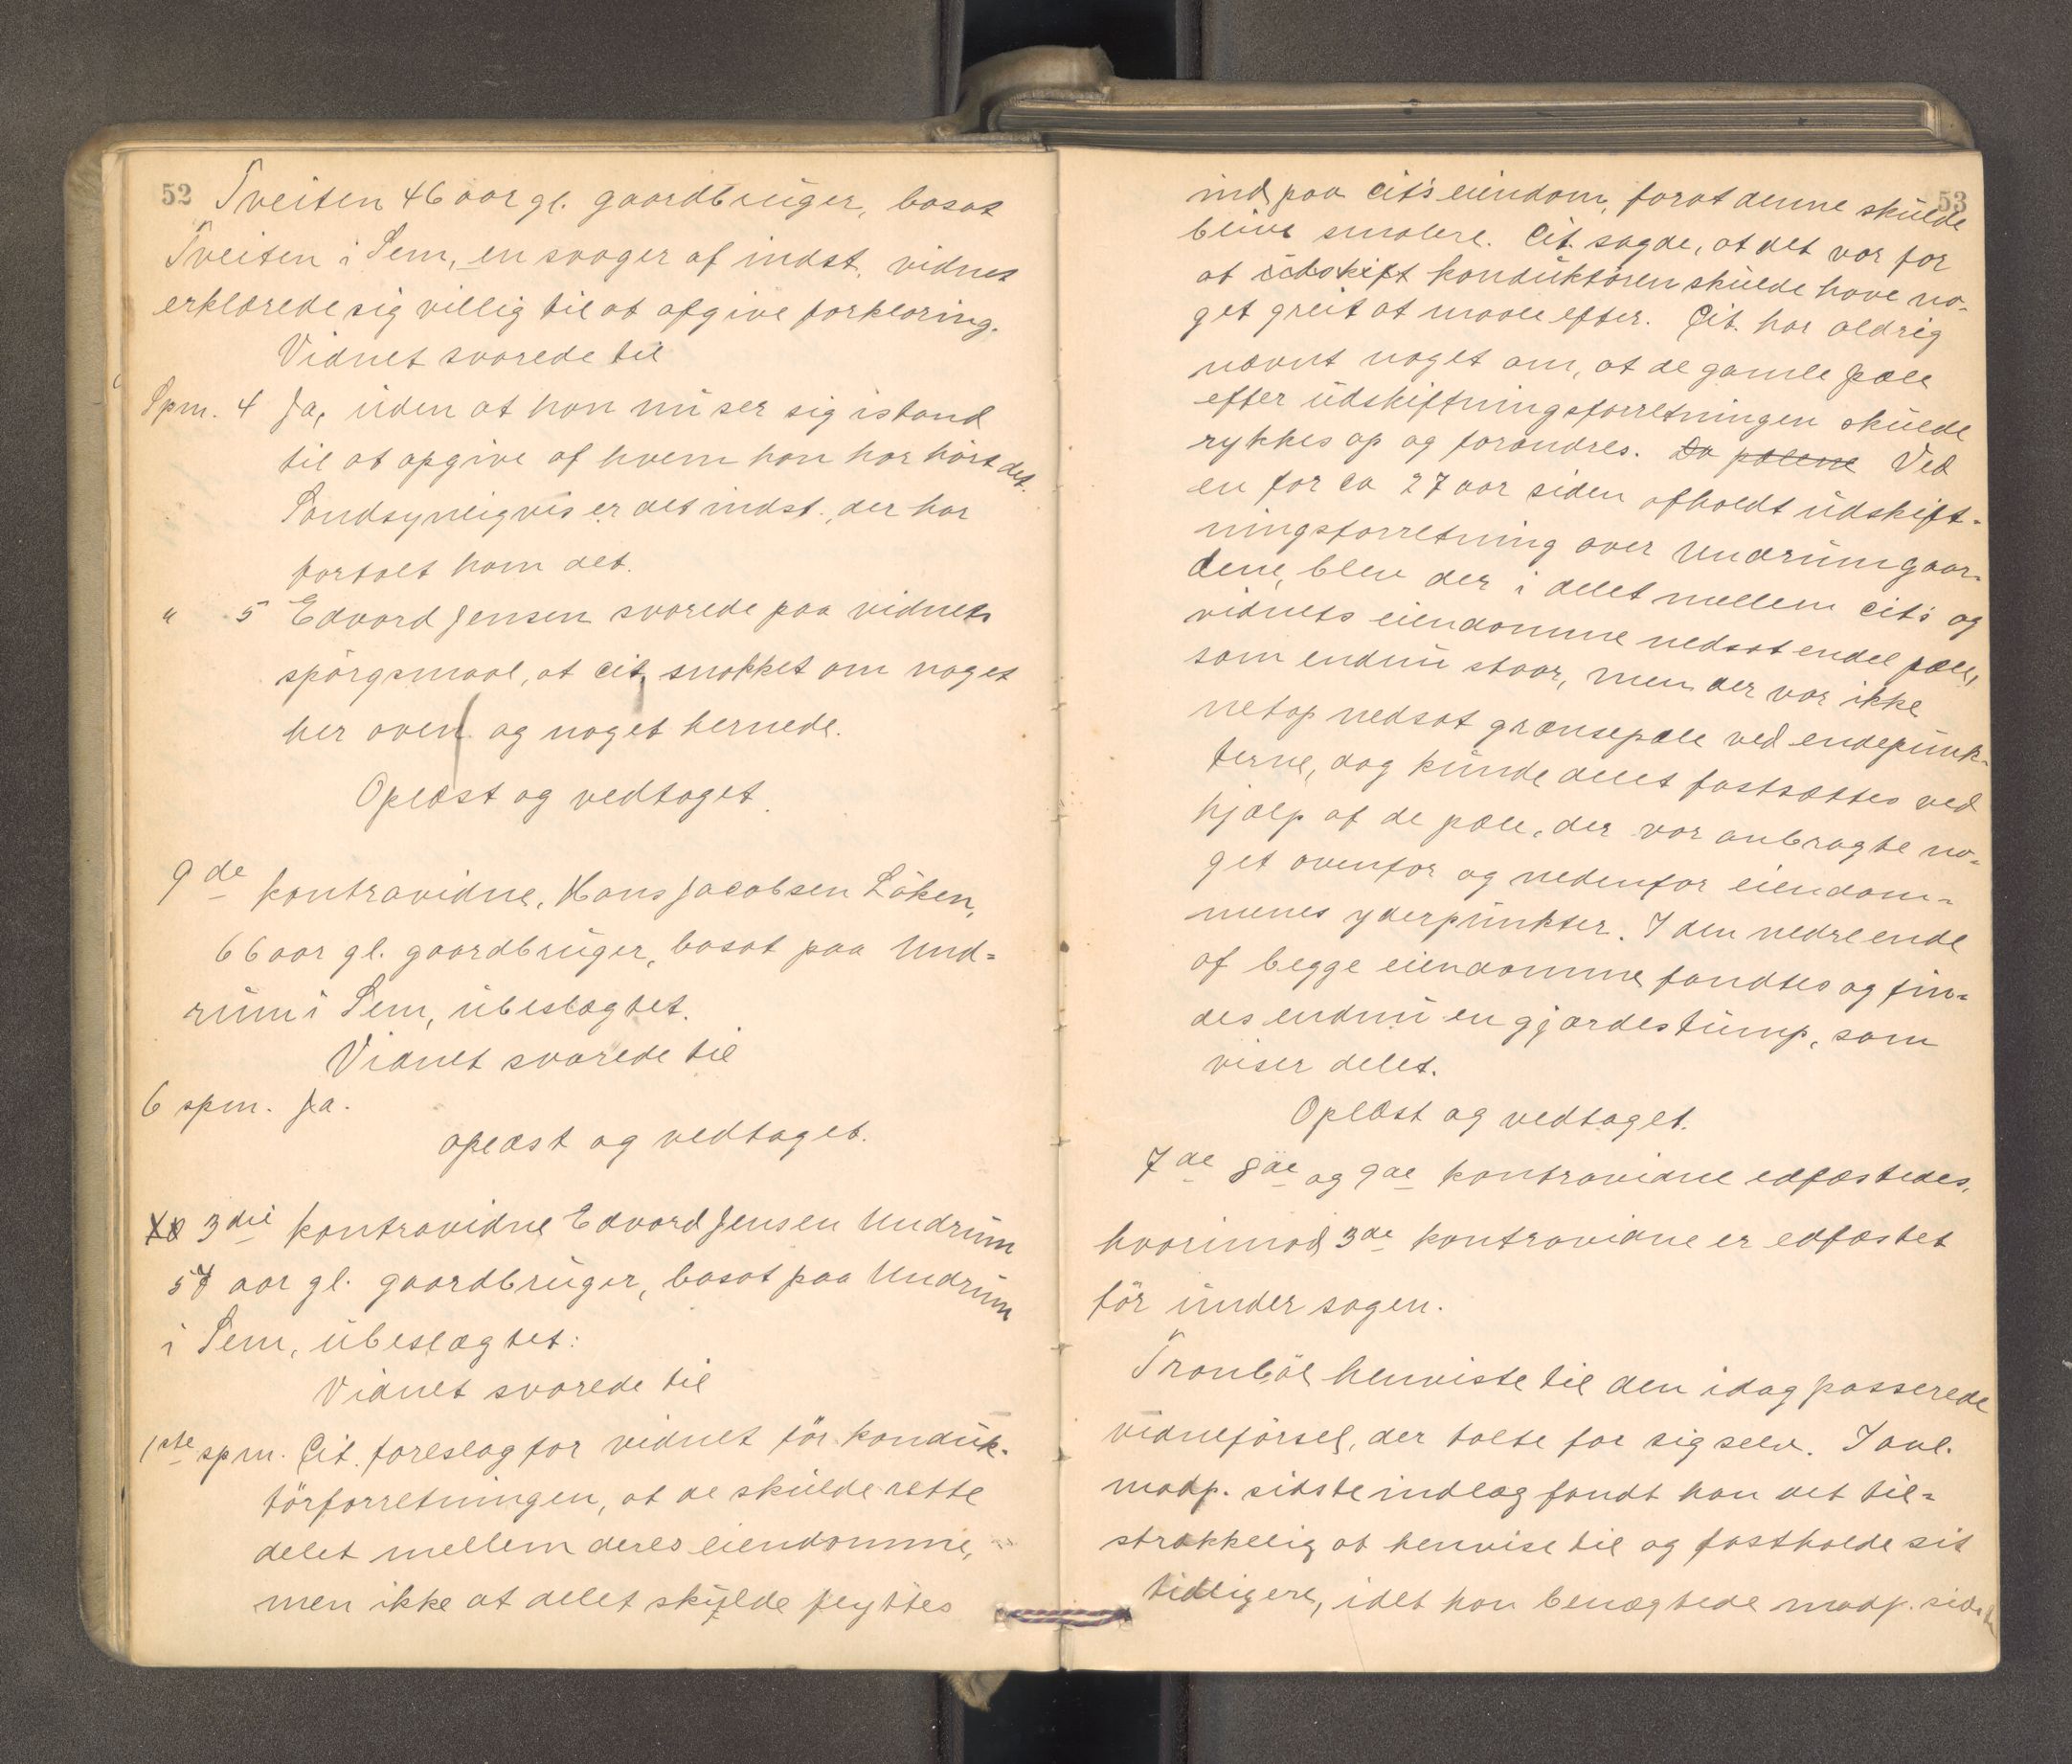 52
Tveiten 46 aar gl. gaardbruger, bosat
Tveiten i Sem, en svoger af indst. vidnet
erklærede sig villig til at afgive forklaring.
Vidnet svarede til
Spm. 4 Ja, uden at han nu ser sig istand
til at opgive af hvem han har hørt det.
Sandsynligvis er det indst. der har
fortalt ham det.
" 5 Edvard Jensen svarede paa vidnets
spørgsmaal, at cit. snakket om noget
her oven og noget hernede.
Oplæst og vedtaget.
9de kontravidne, Hans Jacobsen Løken,
66 aar gl. gaardbruger, bosat paa Und=
rum i Sem, ubeslægtet.
Vidnet svarede til
6 spm. Ja.
oplæst og vedtaget.
3die kontravidne Edvard Jensen Undrum
57 aar gl. gaardbruger, bosat paa Undrum
i Sem, ubeslægtet:
Vidnet svarede til
1ste spm. Cit. foreslog for vidnet før konduk-
tørforretningen, at de skulde rette
delet mellem deres eiendomme,
men ikke at delet skulde flyttes
53
ind paa cit's eiendom, forat denne skulde
blive smalere. Cit. sagde, at det var for
at udskift konduktøren skulde have no-
get greit at maale efter. Cit. har aldrig
nævnt noget om, at de gamle pæle
efter udskiftningsforretningen skulde
rykkes op og forandres. Da pælene Ved
en for ca 27 aar siden afholdt udskift-
ningsforretning over Undrumgaar-
dene, blev der i delet mellem cit's og
vidnets eiendomme nedsat endel pæle,
som endnu staar, men der var ikke
netop nedsat grænsepæle ved endepunk-
terne, dog kunde delet fastsættes ved
hjælp af de pæle, der var anbragte no-
get ovenfor og nedenfor eiendom-
menes yderpunkter. I den nedre ende
af begge eiendomme fandtes og fin-
des endnu en gjærdestump, som
viser delet.
Oplæst og vedtaget.
7de 8de og 9de kontravidne edfæstedes,
hvorimod 3de kontravidne er edfæstet
før under sagen.
Tranbøl henviste til den idag passerede
vidneførsel, der talte for sig selv. I anl.
modp. sidste indlæg fandt han det til=
strækkelig at henvise til og fastholde sit
tidligere, idet han benægtede modp. sidste